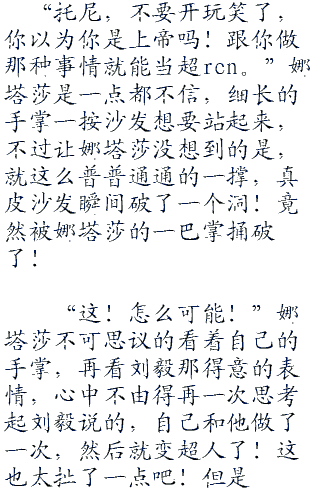 “托尼，不要开玩笑了，
你以为你是上帝吗！跟你做
那种事情就能当超rcn。”娜
塔莎是一点都不信，细长的
手掌一按沙发想要站起来，
不过让娜塔莎没想到的是，
就这么普普通通的一撑，真
皮沙发瞬间破了一个洞！竟
然被娜塔莎的一巴掌捅破
了！
“这！怎么可能！”娜
塔莎不可思议的看着自己的
手掌，再看刘毅那得意的表
情，心中不由得再一次思考
起刘毅说的，自己和他做了
一次，然后就变超人了！这
也太扯了一点吧！但是